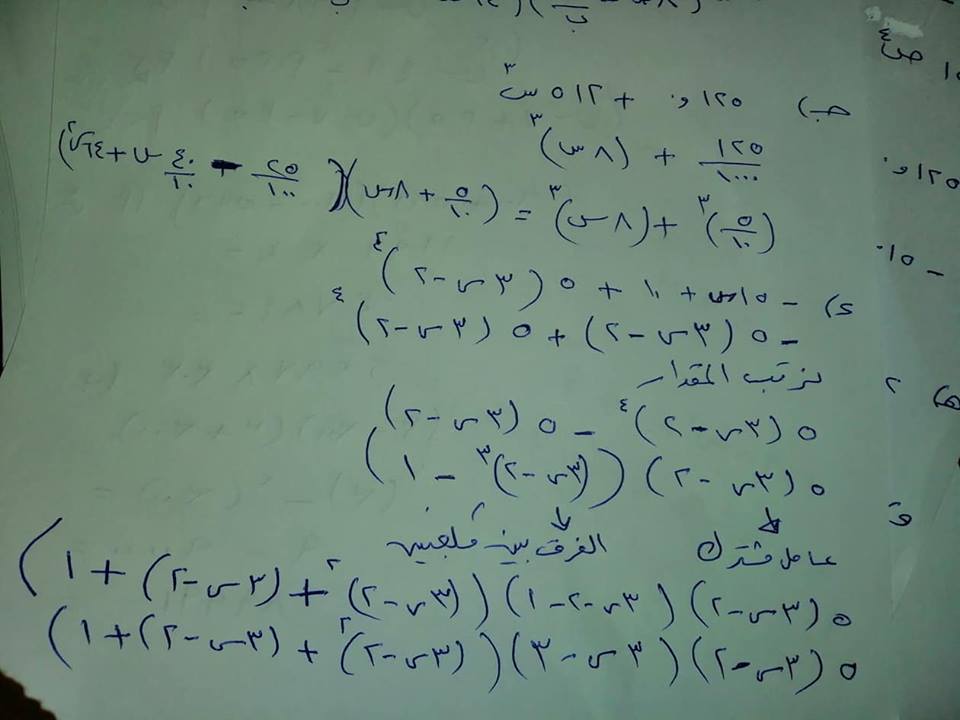 ج) ٠,١٢٥ + ٥١٢ س^٣
١٢٥/١٠٠٠ + (٨ س)^٣
(٥/١٠)^٣ + (٨ س)^٣ = (٥/١٠ + ٨ س)(٢٥/١٠٠ - ٤٠/١٠ س + ٦٤ س^٢)
د) - ١٥ س + ١٠ + ٥ (٣ س - ٢)^٤
- ٥ (٣ س - ٢) + ٥ (٣ س - ٢)^٤
نرتب المقدار
٥ (٣ س - ٢)^٤ - ٥ (٣ س - ٢)
٥ (٣ س - ٢) ((٣ س - ٢)^٣ - ١)
عامل مشترك الفرق بين مكعبين
٥ (٣ س - ٢) (٣ س - ٢ - ١) ((٣ س - ٢)^٢ + (٣ س - ٢) + ١)
٥ (٣ س - ٢) (٣ س - ٣) ((٣ س - ٢)^٢ + (٣ س - ٢) + ١)